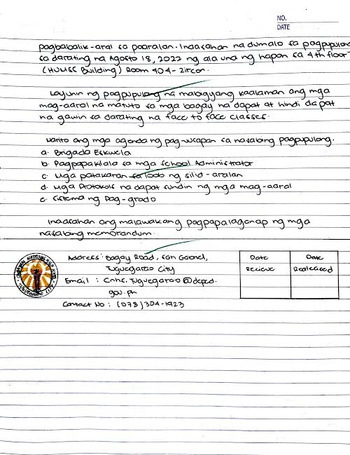 NO.
DATE
pagbabalik-aral sa paaralan. Inaasahan na dumalo sa pagpupulong
sa darating na Agosto 18, 2022 ng ala una ng hapon sa 4th floor
(HUMSS Building) Room 404 - Zircon.
Layunin ng pagpupulong na mabigyang kaalaman ang mga
mag-aaral na matuto sa mga bagay na dapat at hindi dapat
na gawin sa darating na face to face classes.
Narito ang mga agenda ng pag-uusapan sa nasabing pagpupulong.
a. Brigada Eskwela
b. Pagpapakilala sa mga School Administrator
c. Mga patakaran sa loob ng silid-aralan
d. Mga Protokol na dapat sundin ng mga mag-aaral
e. Sistema ng Pag-grado
Inaasahan ang malawakang pagpapalaganap ng mga
nasabing memorandum.
Address: Bagay Road, San Gabriel,
Tuguegarao City
Email : Cnhs.Tuguegarao@deped.
gov.ph
Contact No : (078) 304-1923
Date
Recieve
Date
Released